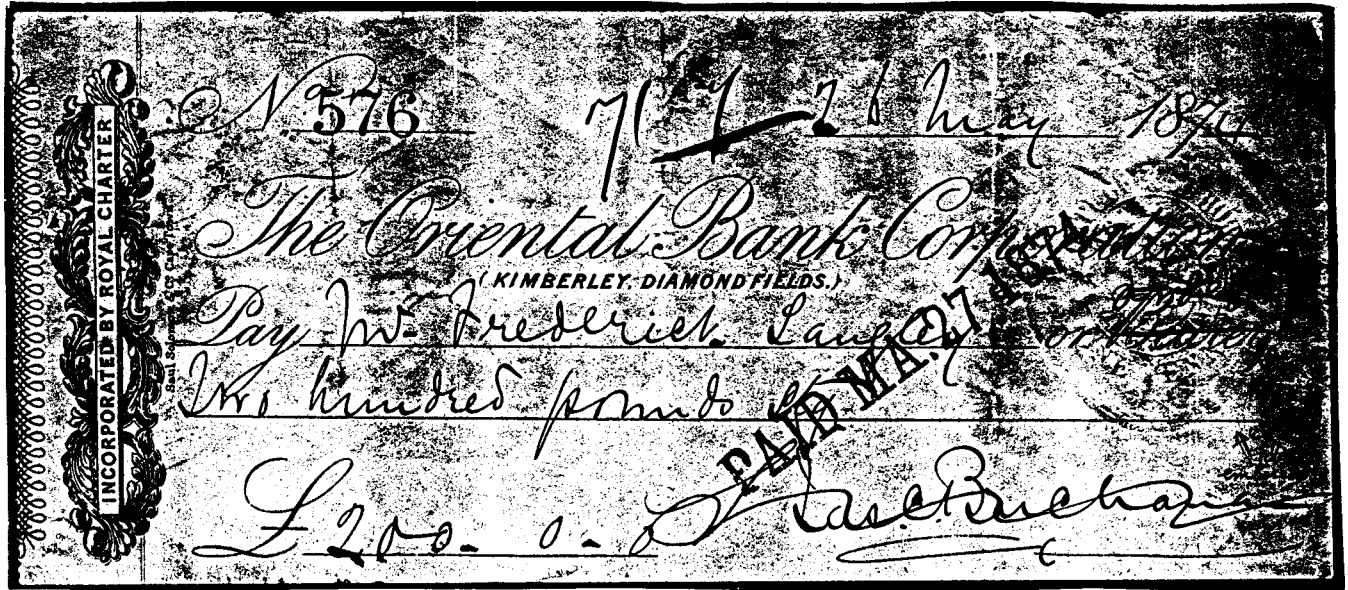 INCORPORATED BY ROYAL CHARTER
No. 576
26 May 1874
The Oriental Bank Corporation
(KIMBERLEY. DIAMOND FIELDS.)
Pay Mr. Frederick Langley or
Two hundred pounds
PAID MA. 27 1874
£ 200. 0. 0
Jas. C. Buchanan